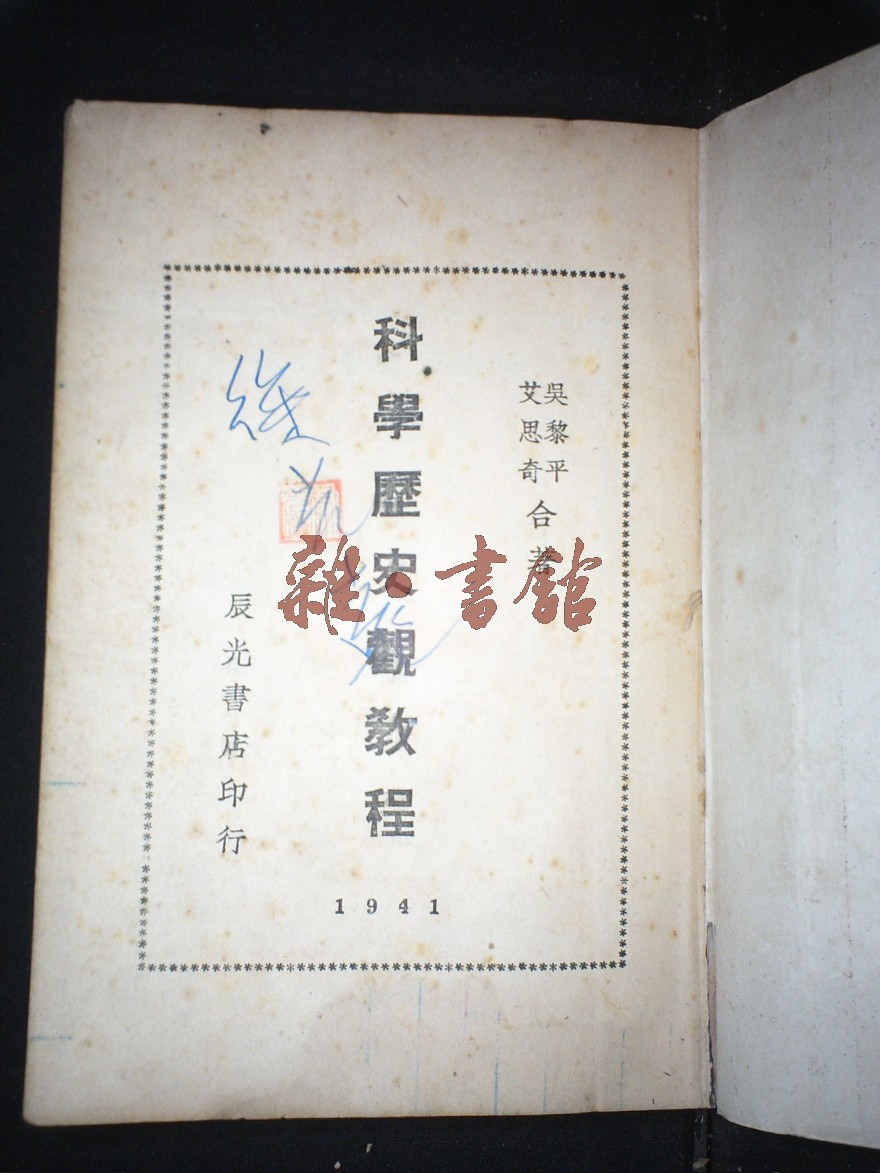 吳黎平
艾思奇
合著
科學歷史觀教程
辰光書店印行
1941
雜·書館